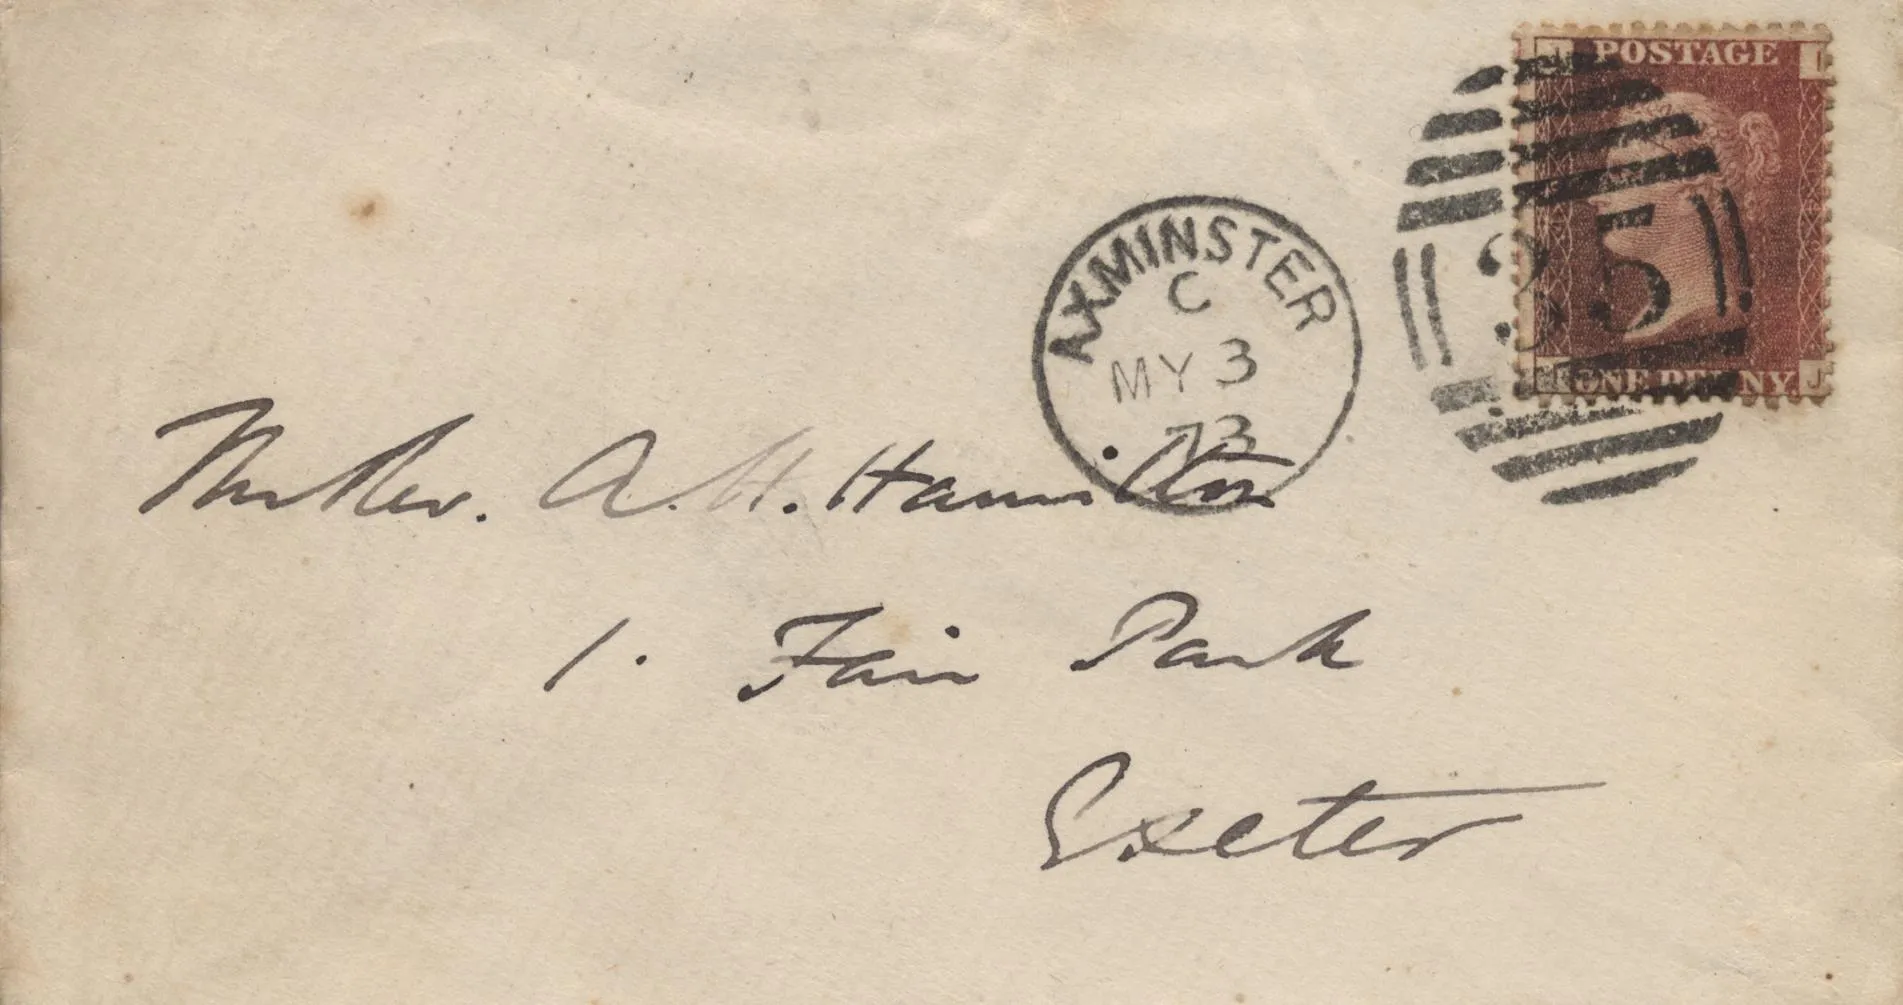 POSTAGE
J I
35
I J
ONE PENNY
AXMINSTER
C
MY 3
73
The Rev. A. H. Hamilton
1. Fair Park
Exeter